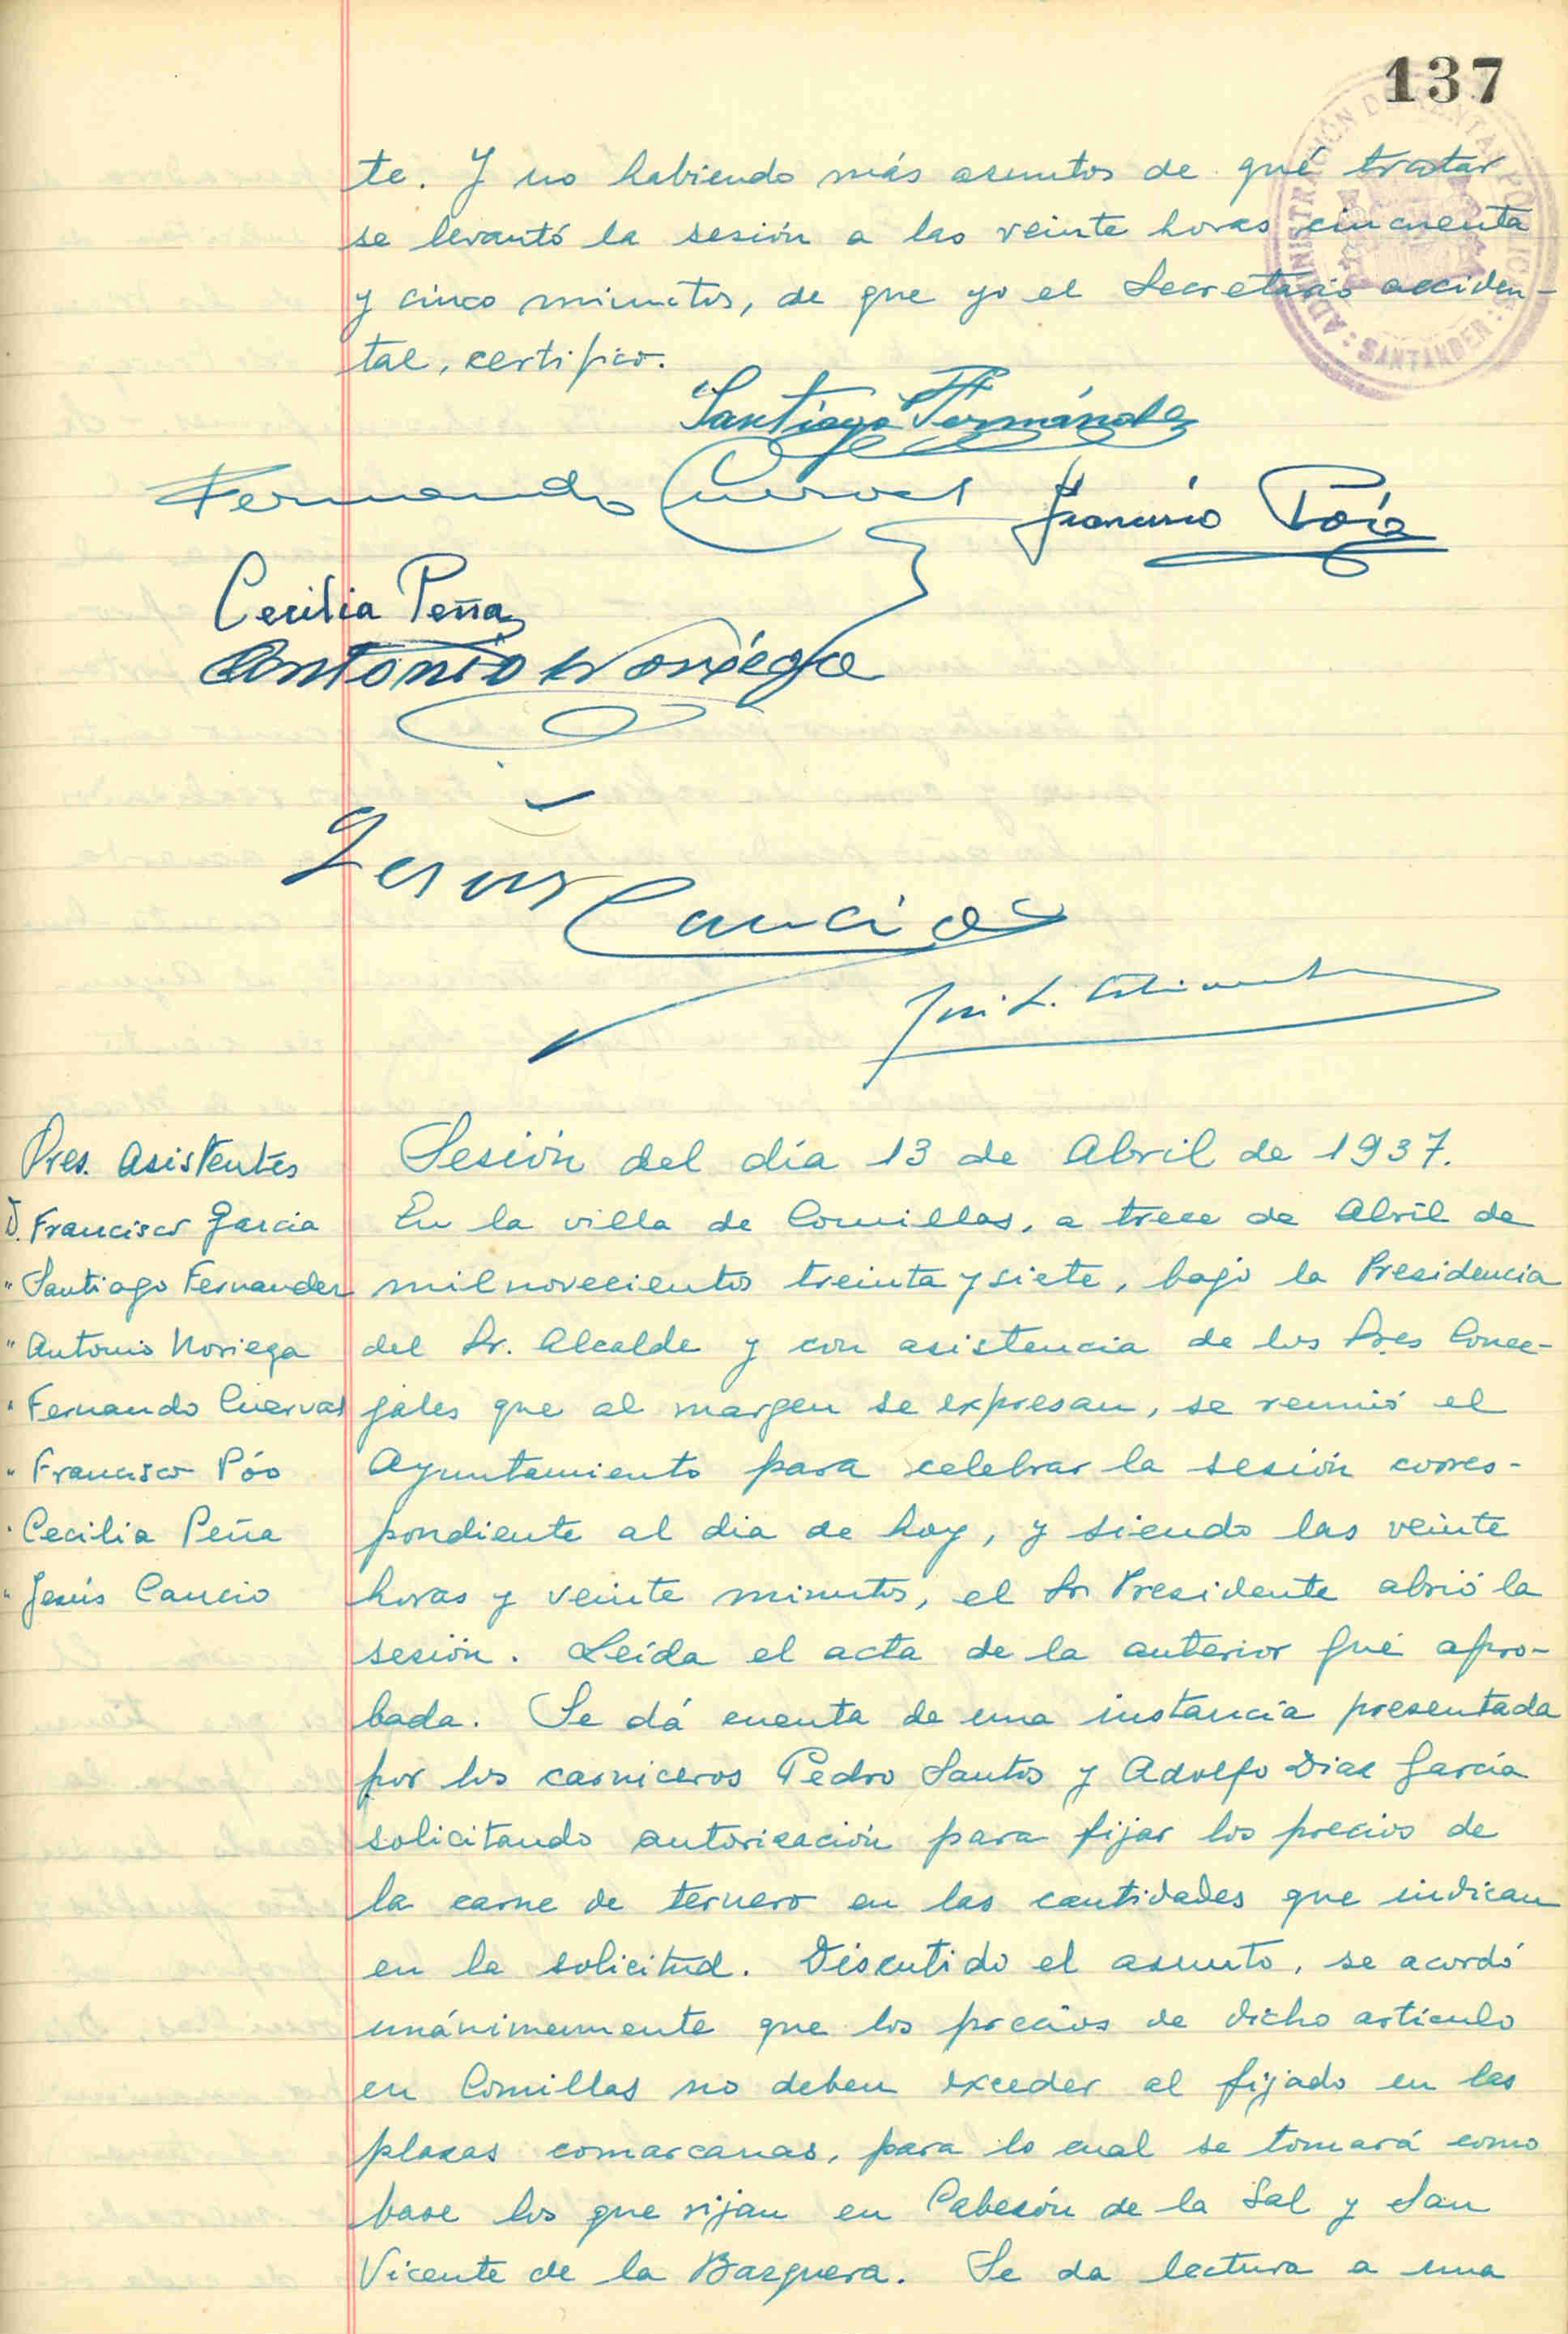 137
ADMINISTRACIÓN DE RENTAS PÚBLICAS
SANTANDER
te. Y no habiendo más asuntos de qué tratar
se levantó la sesión a las veinte horas cincuenta
y cinco minutos, de que yo el Secretario acciden-
tal, certifico.
Santiago Fernández
Fernando Cuervas
Francisco Póo
Cecilia Peña
Antonio Noriega
Jesús Cancio
José L.
Pres. Asistentes
D. Francisco García
" Santiago Fernandez
" Antonio Noriega
" Fernando Cuervas
" Francisco Póo
" Cecilia Peña
" Jesús Cancio
Sesión del día 13 de Abril de 1937.
En la villa de Comillas, a trece de Abril de
milnovecientos treinta y siete, bajo la Presidencia
del Sr. Alcalde y con asistencia de los Sres Conce-
jales que al margen se expresan, se reunió el
Ayuntamiento para celebrar la sesión corres-
pondiente al dia de hoy, y siendo las veinte
horas y veinte minutos, el Sr. Presidente abrió la
sesión. Leída el acta de la anterior fué apro-
bada. Se dá cuenta de una instancia presentada
por los carniceros Pedro Santos y Adolfo Diaz García
solicitando autorización para fijar los precios de
la carne de ternero en las cantidades que indican
en la solicitud. Discutido el asunto, se acordó
unánimemente que los precios de dicho artículo
en Comillas no deben exceder al fijado en las
plazas comarcanas, para lo cual se tomará como
base los que rijan en Cabezón de la Sal y San
Vicente de la Barquera. Se da lectura a una